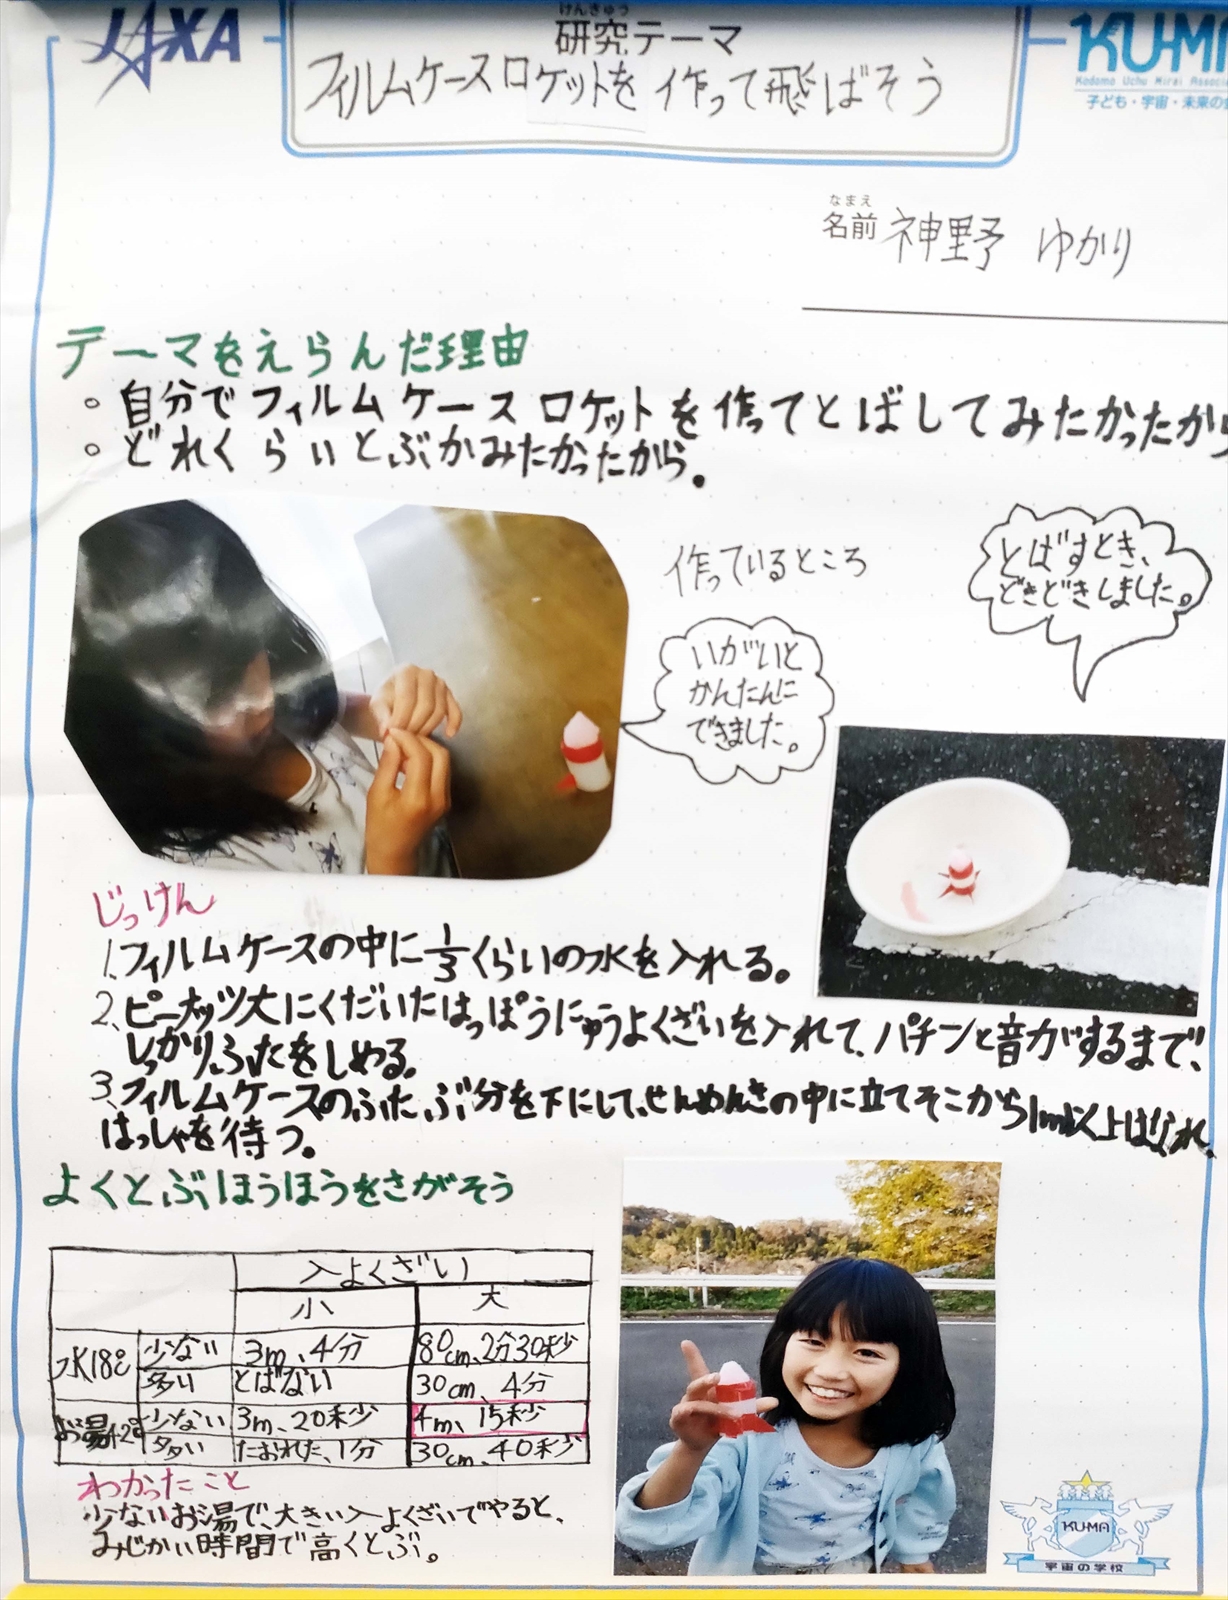 JAXA
けんきゅう
研究テーマ
フィルムケースロケットを作って飛ばそう
KU-MA
Kodomo Uchu Mirai Associ
子ども・宇宙・未来の会
なまえ
名前 神野 ゆかり
テーマをえらんだ理由
○自分でフィルムケースロケットを作ってとばしてみたかったから
○どれくらいとぶかみたかったから。
作っているところ
とばすとき、
どきどきしました。
いがいと
かんたんに
できました。
じっけん
1、フィルムケースの中に1/3くらいの水を入れる。
2、ピーナッツ大にくだいたはっぽうにゅうよくざいを入れて、パチンと音がするまで、
しっかりふたをしめる。
3、フィルムケースのふたぶ分を下にして、せんめんきの中に立てそこから1m以上はなれ、
はっしゃを待つ。
よくとぶほうほうをさがそう
入よくざい
小 大
水18℃ 少ない 3m、4分 80cm、2分30秒
多い とばない 30cm、4分
お湯42℃ 少ない 3m、20秒 4m、15秒
多い たおれた、1分 30cm、40秒
わかったこと
少ないお湯で、大きい入よくざいでやると、
みじかい時間で高くとぶ。
KU-MA
宇宙の学校